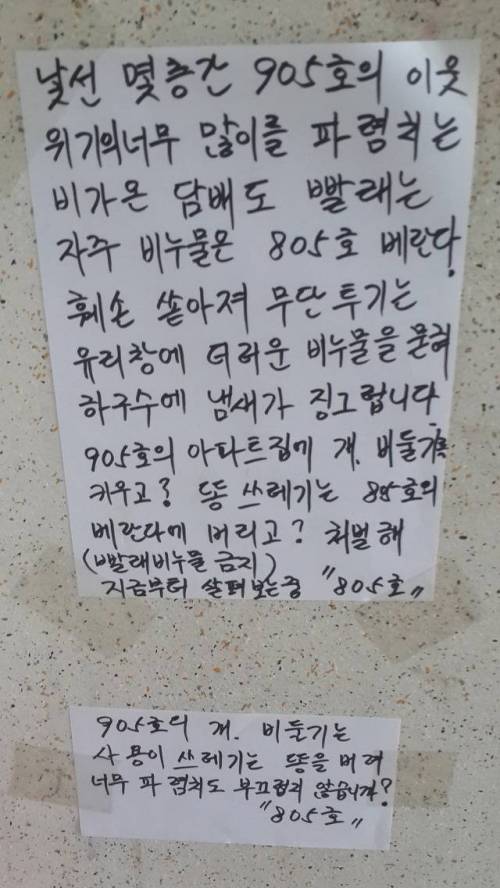 낯선 몇층간 905호의 이웃
위기의너무 많이를 파렴치는
비가온 담배도 빨래는
자주 비누물은 805호 베란다.
훼손 쏟아져 무단투기는
유리창에 더러운 비누물을 묻혀
하구수에 냄새가 징그럽니다.
905호의 아파트집에 개. 비둘기똑
키우고? 똥 쓰레기는 805호의
베란다에 버리고? 처벌해
(빨래비누물 금지)
지금부터 살펴보는중 "805호"
905호의 개. 비둘기는
사용이 쓰레기는 똥을 버려
너무 파렴치도 부끄럽지 않습니까?
"805호"